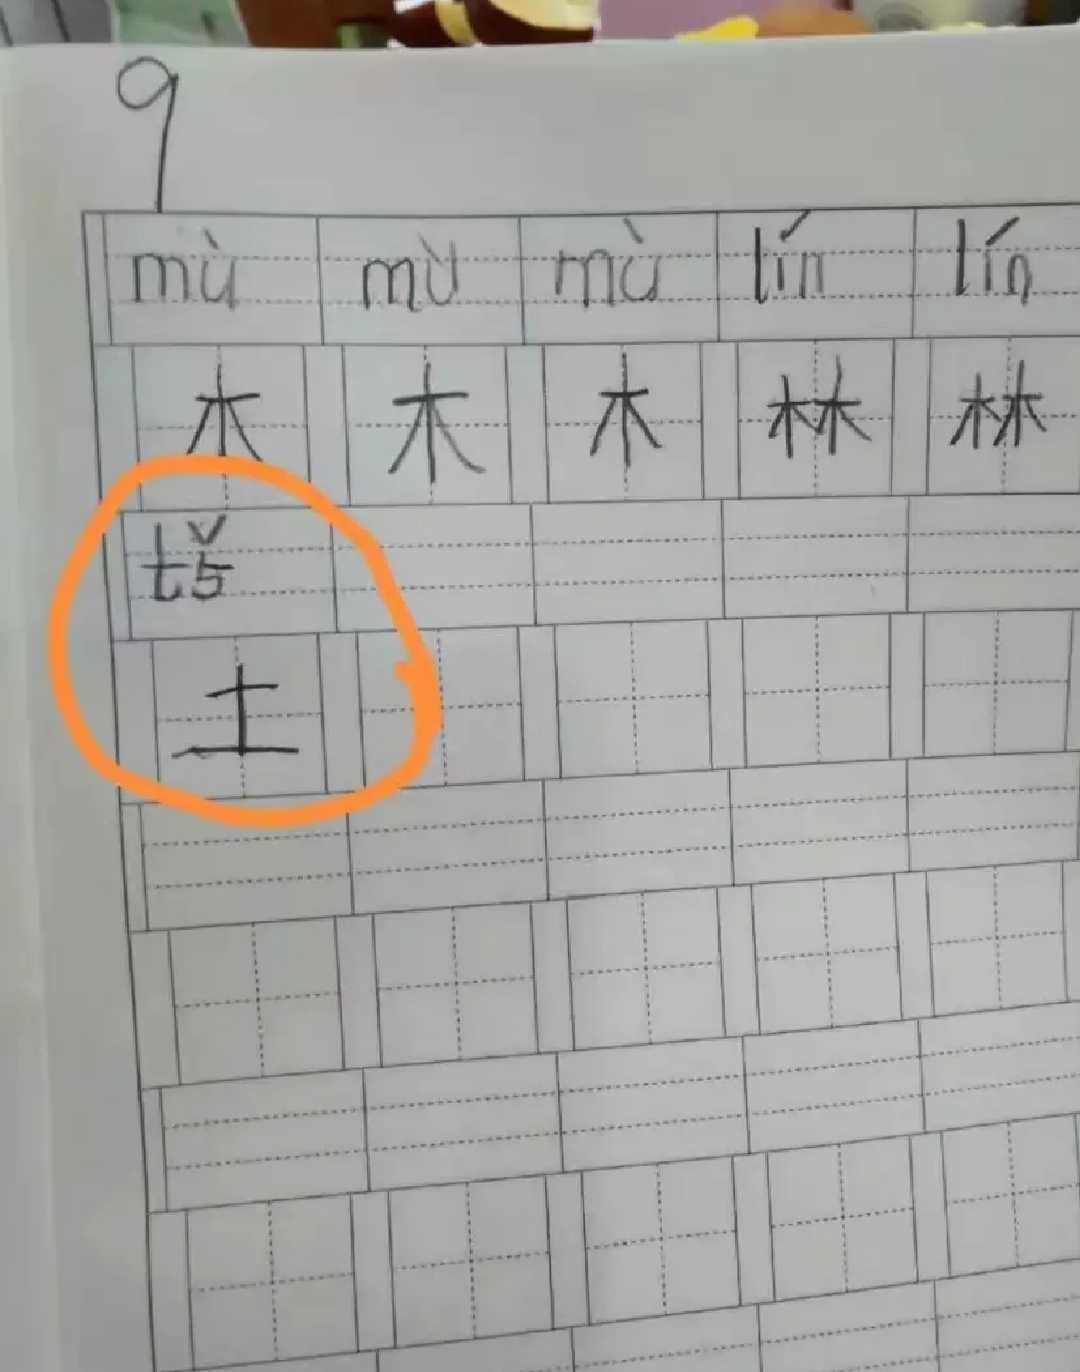 9
mù mù mù lín lín
木 木 木 林 林
tǔ
土